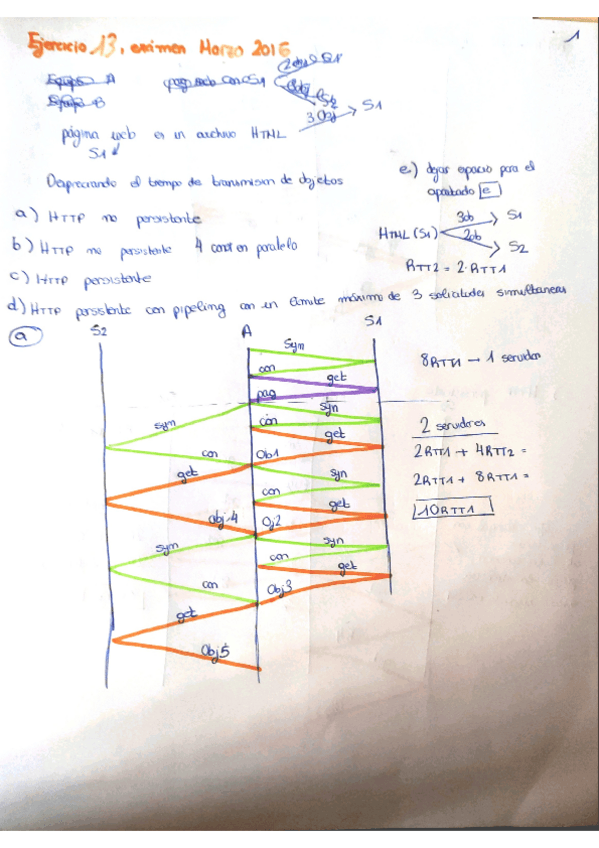 Ejercicio 13, exámen Marzo 2016
1
A
B
S2
3 Obj
S1
página web es un archivo HTML
S1
Despreciando el tiempo de transmision de objetos
e) dejar espacio para el
apartado e
a) HTTP no persistente
3ob
S1
HTML (S1)
2ob
S2
b) HTTP no persistente 4 con en paralelo
RTT2 = 2·RTT1
c) HTTP persistente
d) HTTP persistente con pipeling con un limite máximo de 3 solicitudes simultaneas
a
S2
A
S1
Syn
con
get
pag
syn
8RTT1 → 1 servidor
syn
con
get
2 servidores
con
Ob1
2RTT1 + 4RTT2 =
get
syn
con
2RTT1 + 8RTT1 =
get
10RTT1
Obj4
Oj2
syn
syn
con
get
con
Obj3
get
Obj5